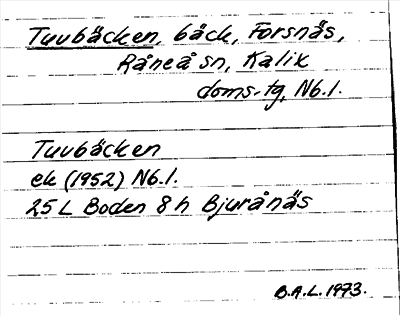 Tuvbäcken, bäck, Forsnäs,
Råneå sn, Kalix
doms.tg, Nb.l.
Tuvbäcken
ek (1952) Nb.l.
25 L Boden 8 h Bjurånäs
B.A.L. 1973.